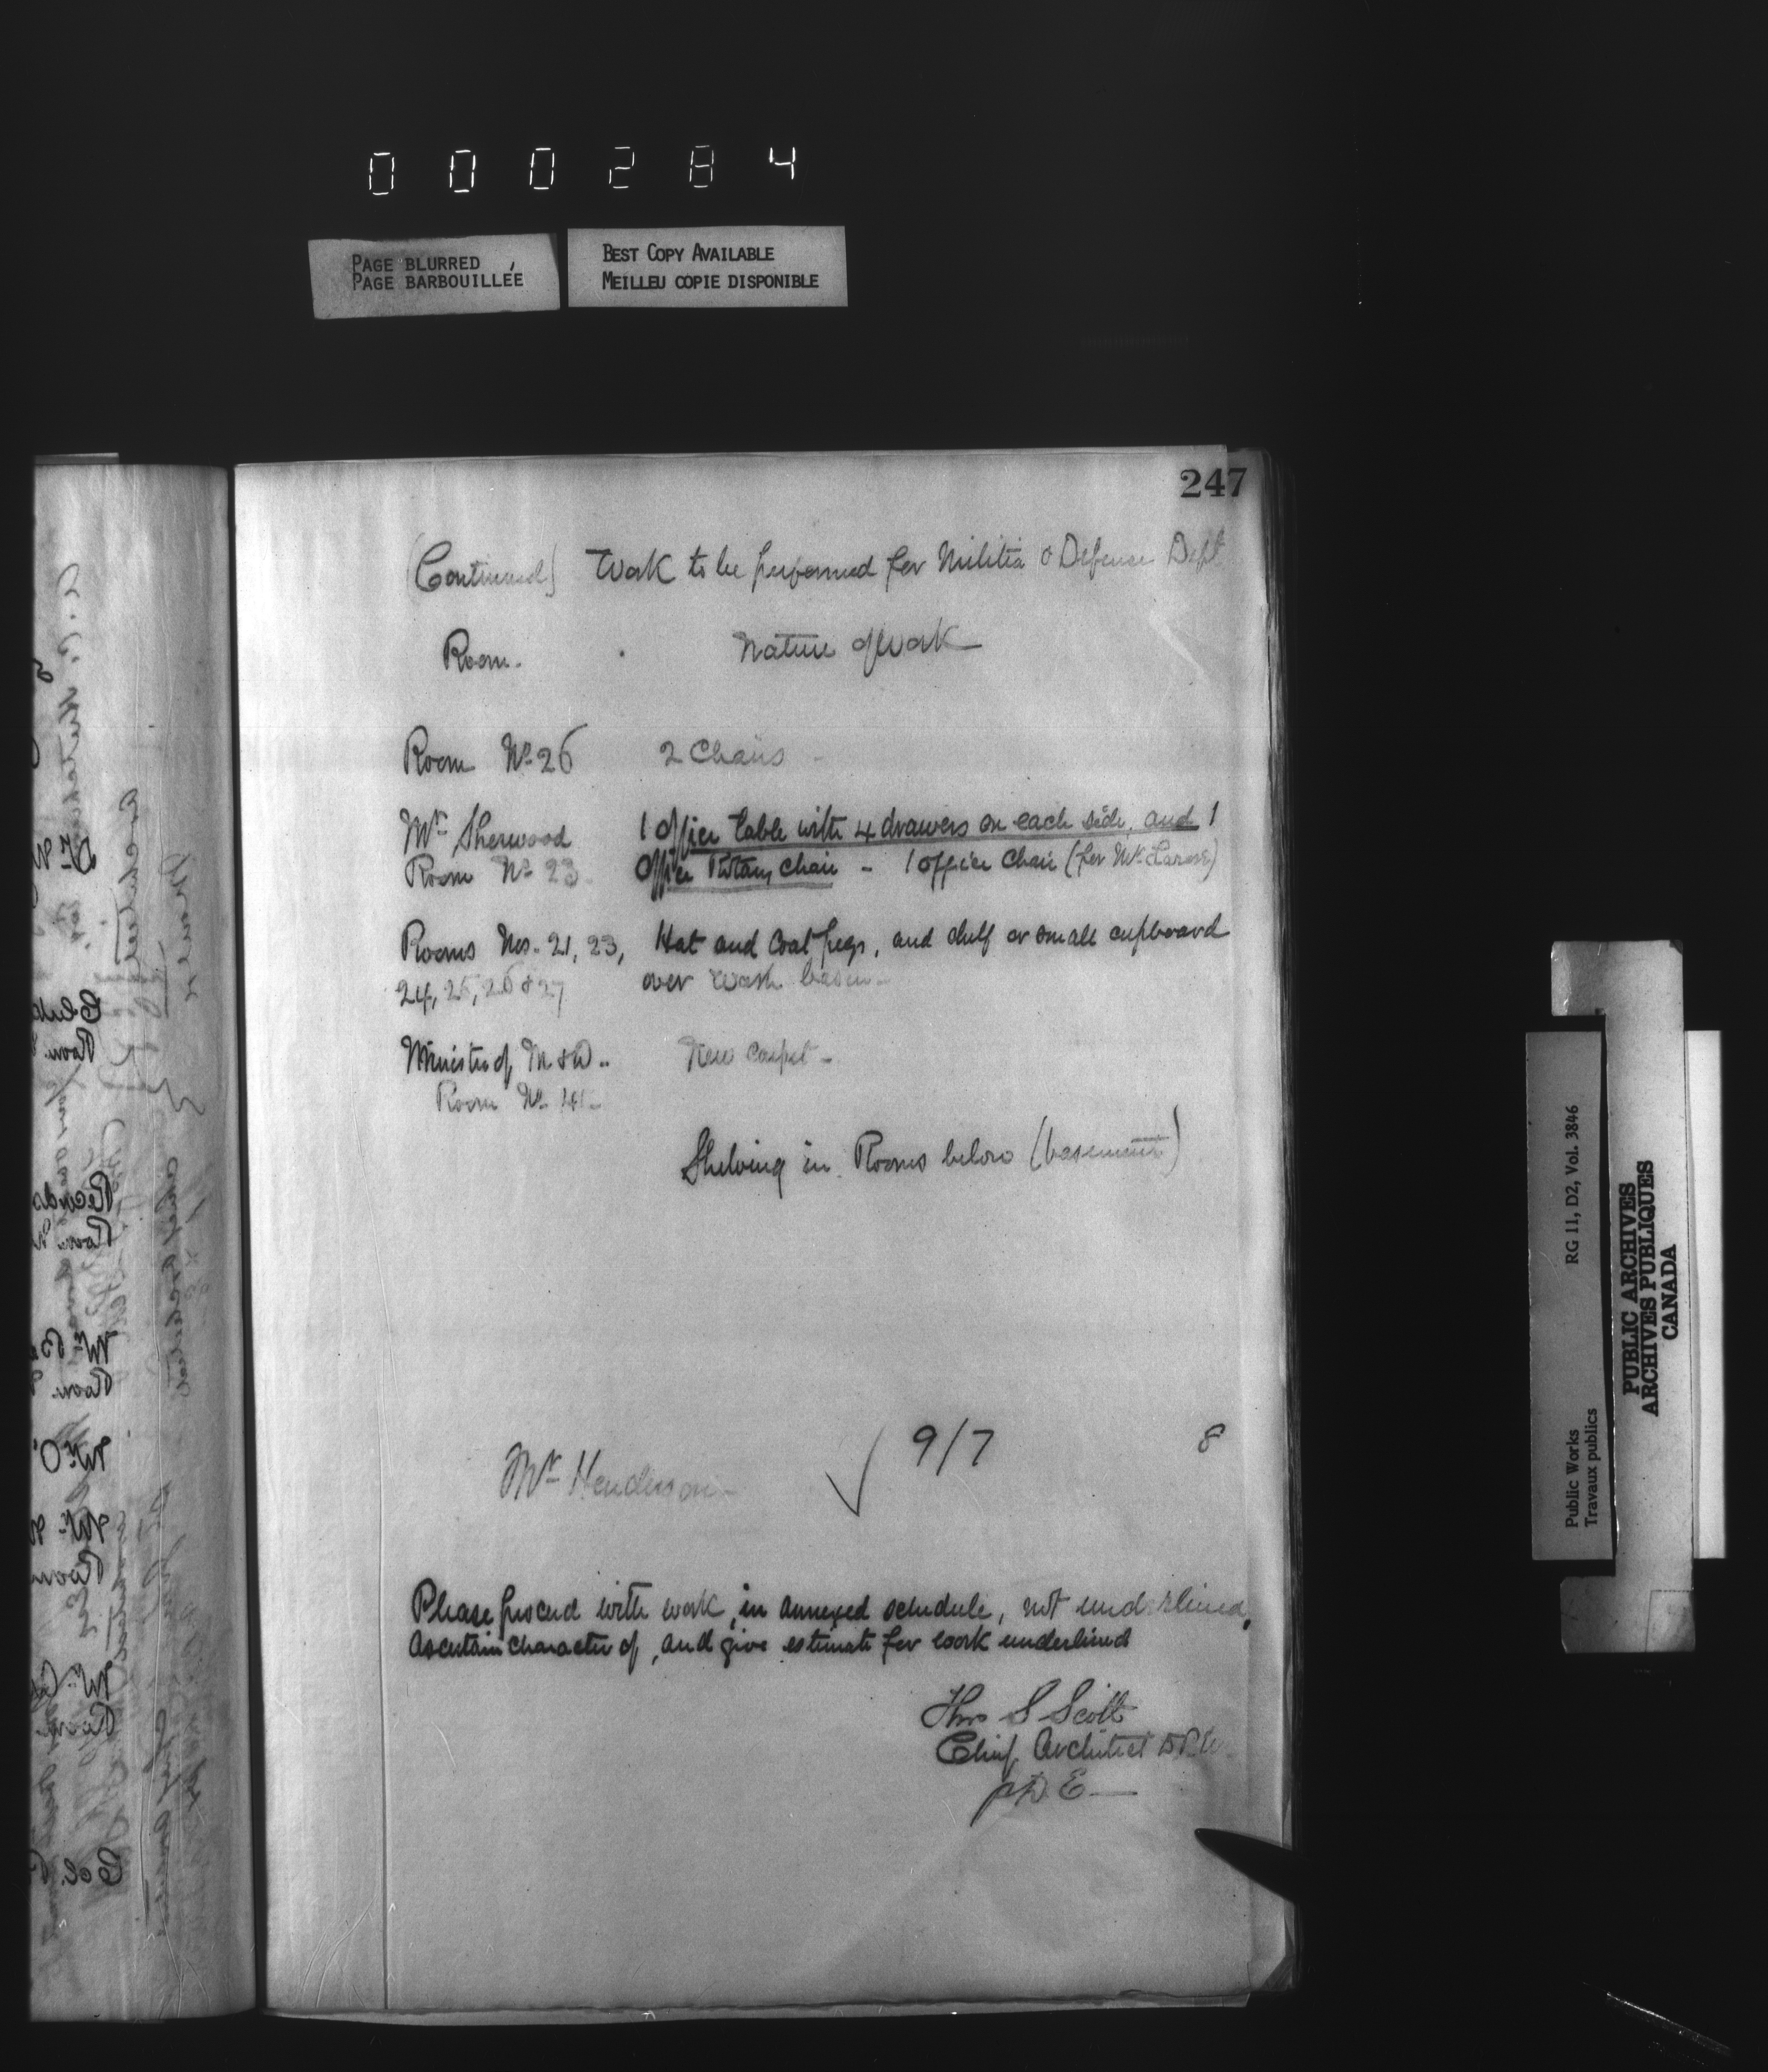 000284
PAGE BLURRED
PAGE BARBOUILLÉE
BEST COPY AVAILABLE
MEILLEU COPIE DISPONIBLE
247
(Continued) Work to be performed for Militia & Defense Dept
Room. Nature of Work
Room No 26 2 Chairs -
Mr Sherwood 1 office table with 4 drawers on each side, and 1
Room No 23. Office Rotary Chair - 1 office Chair (for Mr
Rooms Nos. 21, 23, Hat and Coat pegs, and shelf or small cupboard
24, 25, 26 & 27 over wash basin -
Minister of M & D.. New carpet -
Room No
Shelving in Rooms below (basement)
Mr Henderson - ✓ 9/7 8
Please proceed with work, in annexed schedule, not underlined,
ascertain character of, and give estimate for work underlined
Thos S Scott
Chief Architect D.P.W.
Public Works
Travaux publics
RG 11, D2, Vol. 3846
PUBLIC ARCHIVES
ARCHIVES PUBLIQUES
CANADA